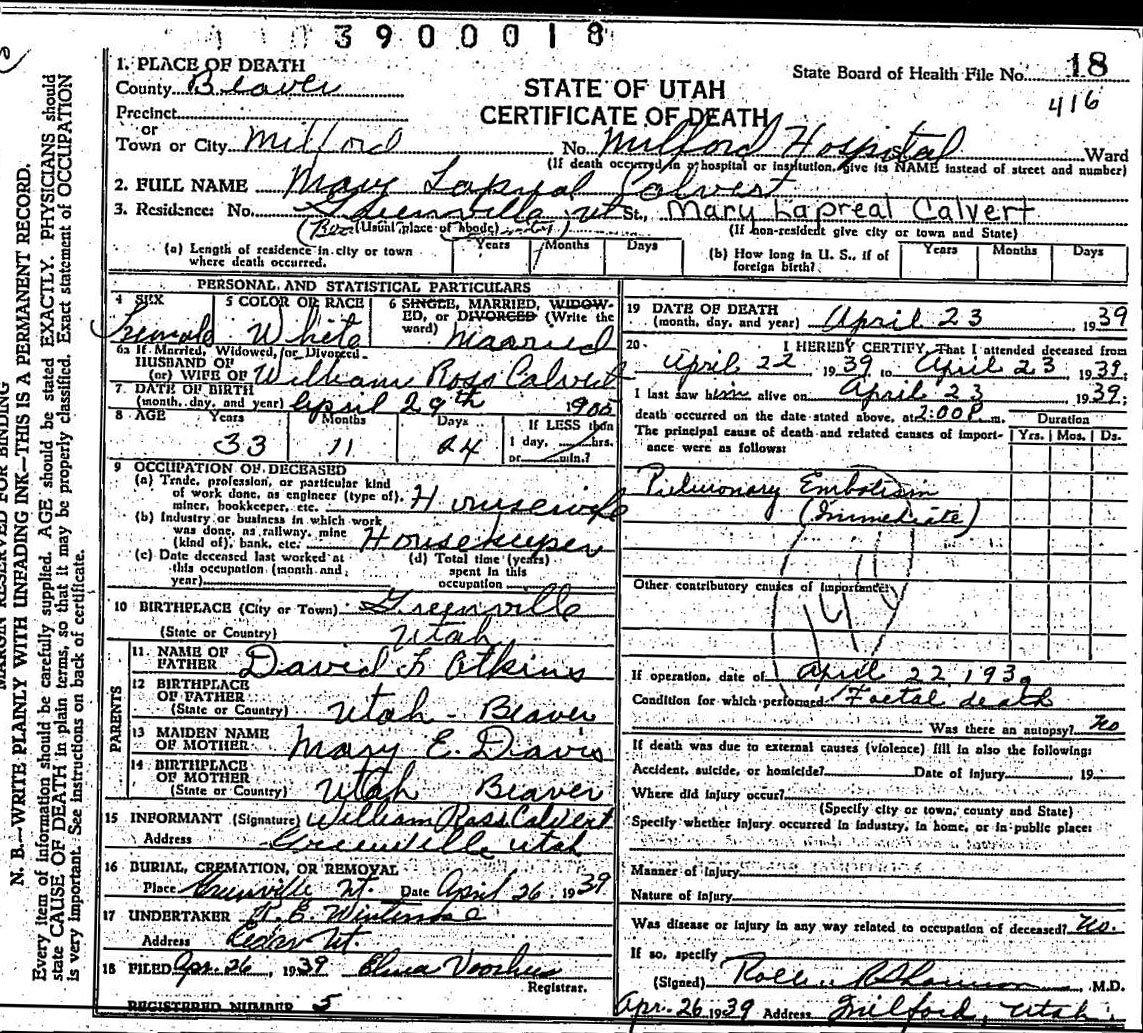 3900018
1. PLACE OF DEATH
County Beaver
State Board of Health File No. 18
416
STATE OF UTAH
CERTIFICATE OF DEATH
Precinct
or
Town or City Milford No. Milford Hospital Ward
(If death occurred in a hospital or institution, give its NAME instead of street and number)
2. FULL NAME Mary Lapreal Calvert
3. Residence: No. Greenville Ut St., Mary Lapreal Calvert
(Usual place of abode) (If non-resident give city or town and State)
(a) Length of residence in city or town where death occurred. Years Months Days
(b) How long in U. S., if of foreign birth? Years Months Days
PERSONAL AND STATISTICAL PARTICULARS
4 SEX Female
5 COLOR OR RACE White
6 SINGLE, MARRIED, WIDOWED, or DIVORCED (Write the word) Married
6a If Married, Widowed, or Divorced
HUSBAND OF
(or) WIFE OF William Ross Calvert
7 DATE OF BIRTH
(month, day, and year) April 29th 1905
8 AGE Years 33 Months 11 Days 24 If LESS than 1 day, hrs. or min.?
9 OCCUPATION OF DECEASED
(a) Trade, profession, or particular kind of work done, as engineer (type of), miner, bookkeeper, etc. Housewife
(b) Industry or business in which work was done, as railway, mine (kind of), bank, etc. Housekeeper
(c) Date deceased last worked at this occupation (month and year)
(d) Total time (years) spent in this occupation
10 BIRTHPLACE (City or Town) Greenville
(State or Country) Utah
PARENTS
11. NAME OF FATHER David F Atkins
12 BIRTHPLACE OF FATHER
(State or Country) Utah - Beaver
13 MAIDEN NAME OF MOTHER Mary E. Davis
14 BIRTHPLACE OF MOTHER
(State or Country) Utah Beaver
15 INFORMANT (Signature) William Ross Calvert
Address Greenville Utah
16 BURIAL, CREMATION, OR REMOVAL
Place Greenville Ut. Date April 26, 1939
17 UNDERTAKER
Address Cedar Ut.
18 FILED Apr. 26, 1939 Elma Voorhees
Registrar.
REGISTERED NUMBER 5
19 DATE OF DEATH
(month, day, and year) April 23 1939
20 I HEREBY CERTIFY, That I attended deceased from
April 22 1939, to April 23 1939;
I last saw him alive on April 23 1939;
death occurred on the date stated above, at 2:00 P.m.
The principal cause of death and related causes of importance were as follows:
Duration
Yrs. Mos. Ds.
Pulmonary Embolism
(Immediate)
Other contributory causes of importance:
If operation, date of April 22 1939
Condition for which performed Foetal death
Was there an autopsy? No
If death was due to external causes (violence) fill in also the following:
Accident, suicide, or homicide? Date of Injury , 19
Where did injury occur?
(Specify city or town, county and State)
Specify whether injury occurred in industry, in home, or in public place:
Manner of injury
Nature of injury
Was disease or injury in any way related to occupation of deceased? No.
If so, specify
(Signed) , M.D.
Apr. 26 1939 Address Milford, Utah
MARGIN RESERVED FOR BINDING
N. B.—WRITE PLAINLY WITH UNFADING INK—THIS IS A PERMANENT RECORD.
Every item of information should be carefully supplied. AGE should be stated EXACTLY. PHYSICIANS should
state CAUSE OF DEATH in plain terms, so that it may be properly classified. Exact statement of OCCUPATION
is very important. See instructions on back of certificate.